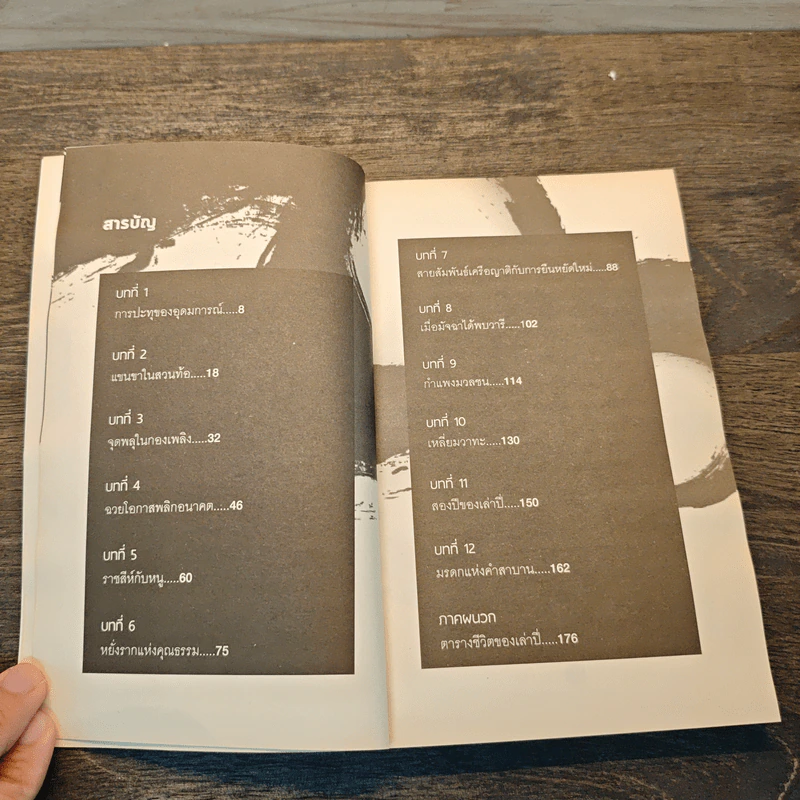 สารบัญ
บทที่ 1
การปะทุของอุดมการณ์.....8
บทที่ 2
แขนขาในสวนท้อ.....18
บทที่ 3
จุดพลุในกองเพลิง.....32
บทที่ 4
ฉวยโอกาสพลิกอนาคต.....46
บทที่ 5
ราชสีห์กับหนู.....60
บทที่ 6
หยั่งรากแห่งคุณธรรม.....75
บทที่ 7
สายสัมพันธ์เครือญาติกับการยืนหยัดใหม่.....88
บทที่ 8
เมื่อมัจฉาได้พบวารี.....102
บทที่ 9
กำแพงมวลชน.....114
บทที่ 10
เหลี่ยมวาทะ.....130
บทที่ 11
สองปีของเล่าปี่.....150
บทที่ 12
มรดกแห่งคำสาบาน.....162
ภาคผนวก
ตารางชีวิตของเล่าปี่.....176